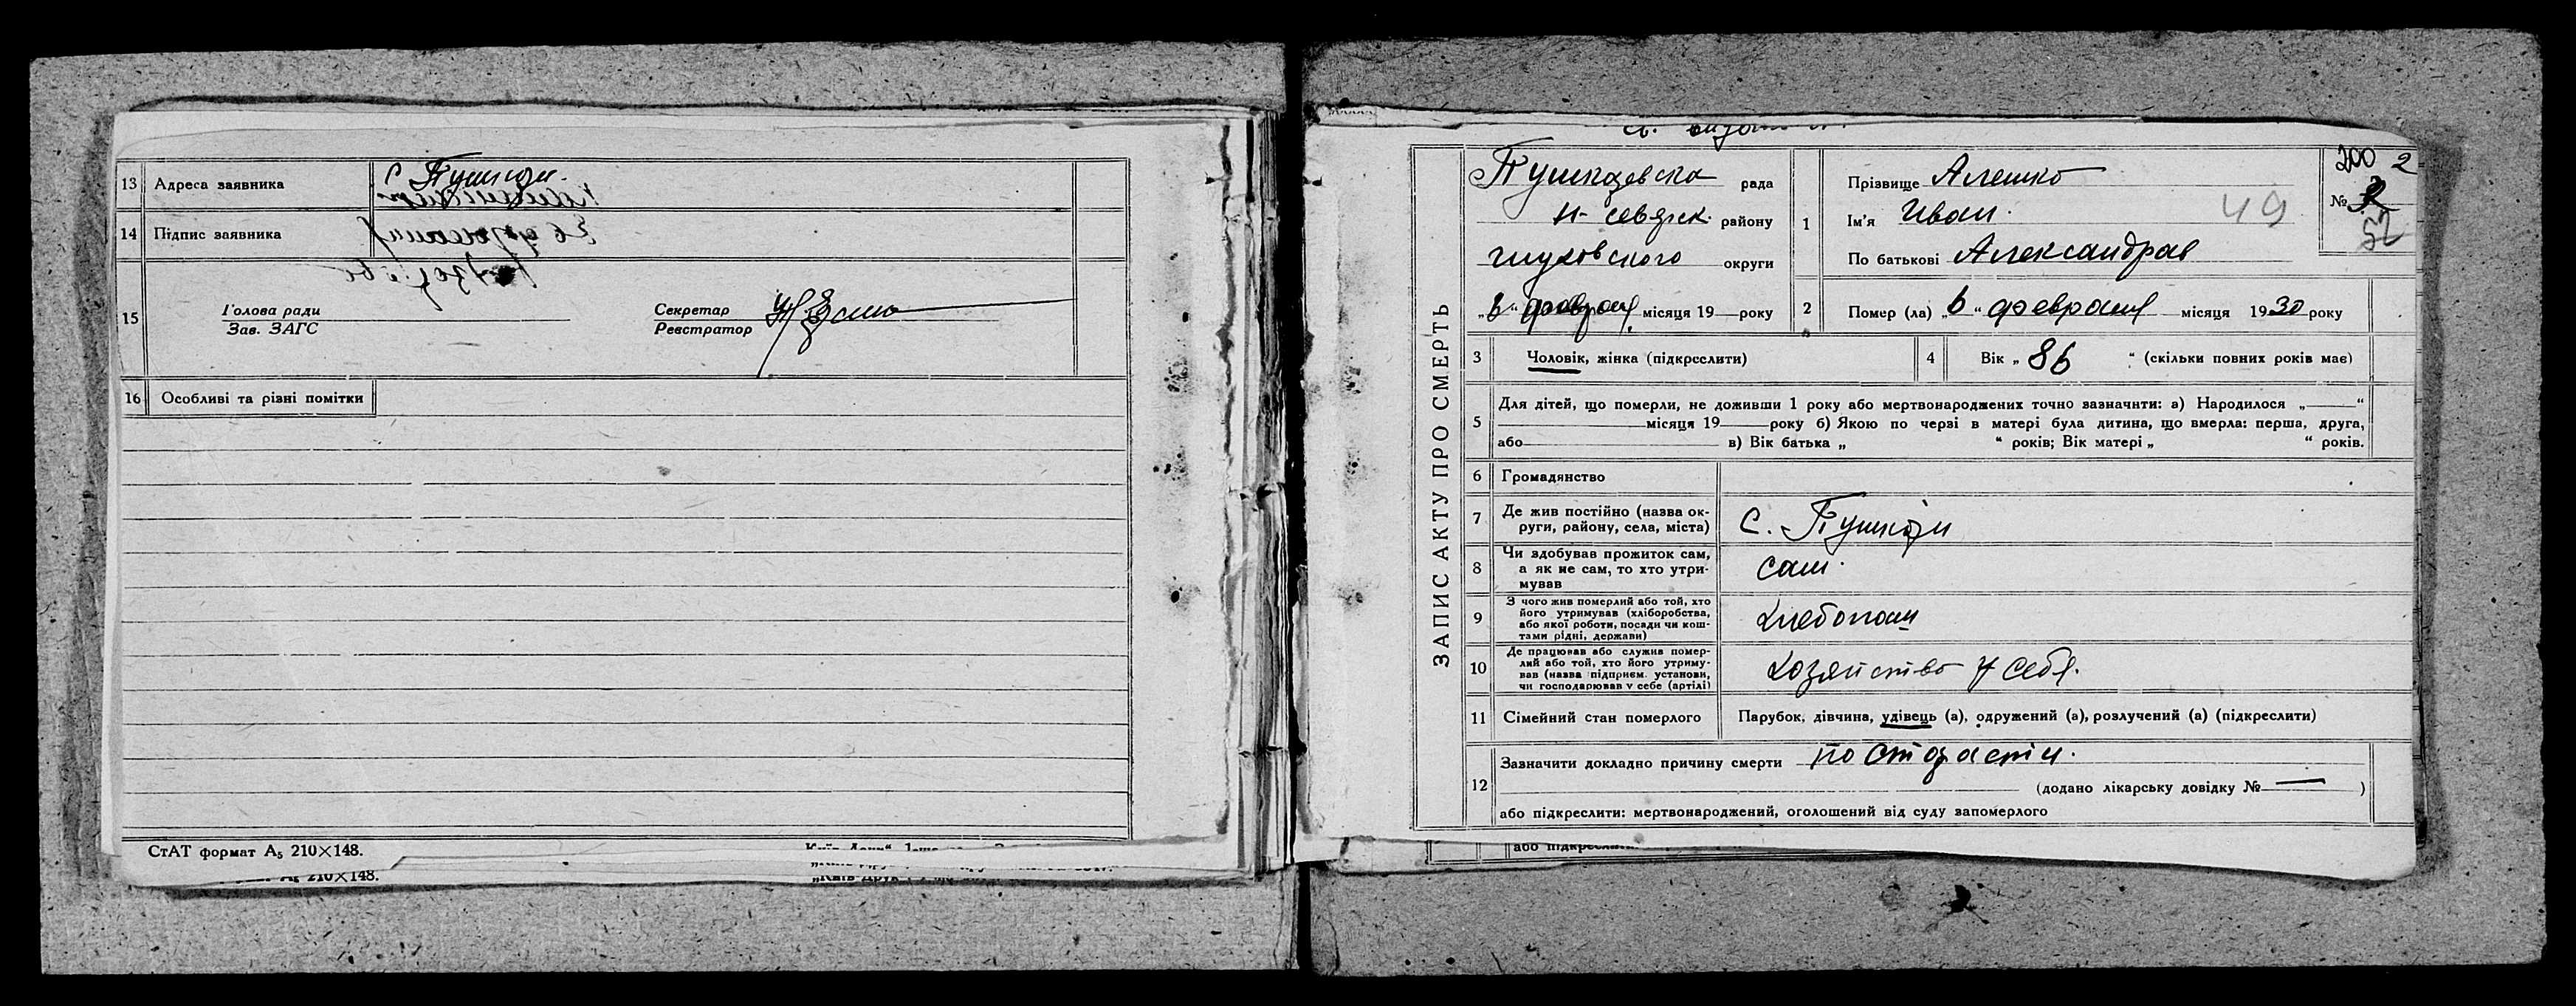 13 Адреса заявника с. Пушкари
14 Підпис заявника
15 Голова ради
Зав. ЗАГС
Секретар
Реєстратор
16 Особливі та різні помітки
СтАТ формат А₅ 210×148.
А₅ 210×148.
ЗАПИС АКТУ ПРО СМЕРТЬ
Пушкаревска рада
Н-севрск. району
Глуховского округи
„6“ февраля місяця 19 року
200 2
№ 2
52
49
1 Прізвище Алешко
Ім'я Иван.
По батькові Александров
2 Помер (ла) „6“ февраля місяця 1930 року
3 Чоловік, жінка (підкреслити)
4 Вік „86“ (скільки повних років має)
5 Для дітей, що померли, не доживши 1 року або мертвонароджених точно зазначити: а) Народилося „ “
місяця 19 року б) Якою по черзі в матері була дитина, що вмерла: перша, друга,
або в) Вік батька „ “ років; Вік матері „ “ років.
6 Громадянство
7 Де жив постійно (назва ок-
руги, району, села, міста) с. Пушкари
8 Чи здобував прожиток сам,
а як не сам, то хто утри-
мував сам.
9 З чого жив померлий або той, хто
його утримував (хліборобства,
або якої роботи, посади чи кош-
тами рідні, держави) хлебопаш
10 Де працював або служив помер-
лий або той, хто його утриму-
вав (назва підприєм. установи,
чи господарював у себе (артілі) хозяйство у себя.
11 Сімейний стан померлого Парубок, дівчина, удівець (а), одружений (а), розлучений (а) (підкреслити)
12 Зазначити докладно причину смерти по старости.
(додано лікарську довідку № — )
або підкреслити: мертвонароджений, оголошений від суду запомерлого